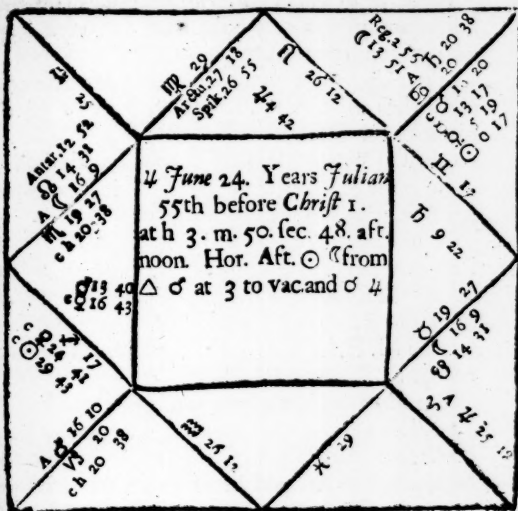 ♃ June 24. Years Julian
55th before Christ 1.
at h 3. m. 50. sec. 48. aft.
noon. Hor. Aft. ☉ ☾ from
△ ♂ at 3 to vac. and ☌ ♃
♍ 29
Arctu. 27 18
Spik. 26 55
♌ 26 12
♃ 4 42
Reg. 2 55
☾ 13 51 A
♄ 20 38
20
13 17
0 17
♊ 17
♄ 9 22
♉ 19 27
☾ 16 9
☋ 14 31
♈ A ♃ 25 12
♓ 29
♒ 26 12
A ♂ 16 10
♑ 20
c h 20 38
c ♀ ♐ 17
24 41
c ☉ 29 43
13 40
c 16 43
♎ 25
Antar. 12 52
☊ 14 31
A ☾ 16 9
♏ 19 27
c h 20 38